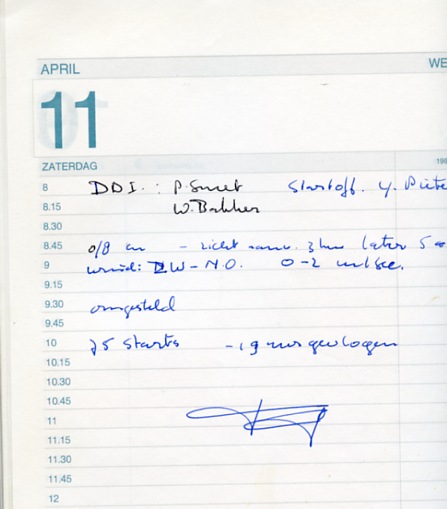 APRIL WE
11
ZATERDAG 199
8 DDI.: P. Smet Startoff. Y. Piete
8.15 W. Bakker
8.30
8.45 0/8 - zicht 3 km later 5
9 wind: ZW - N.O. 0-2 m/sec.
9.15
9.30 omgesteld
9.45
10 25 starts - 19 uur gevlogen
10.15
10.30
10.45
11
11.15
11.30
11.45
12